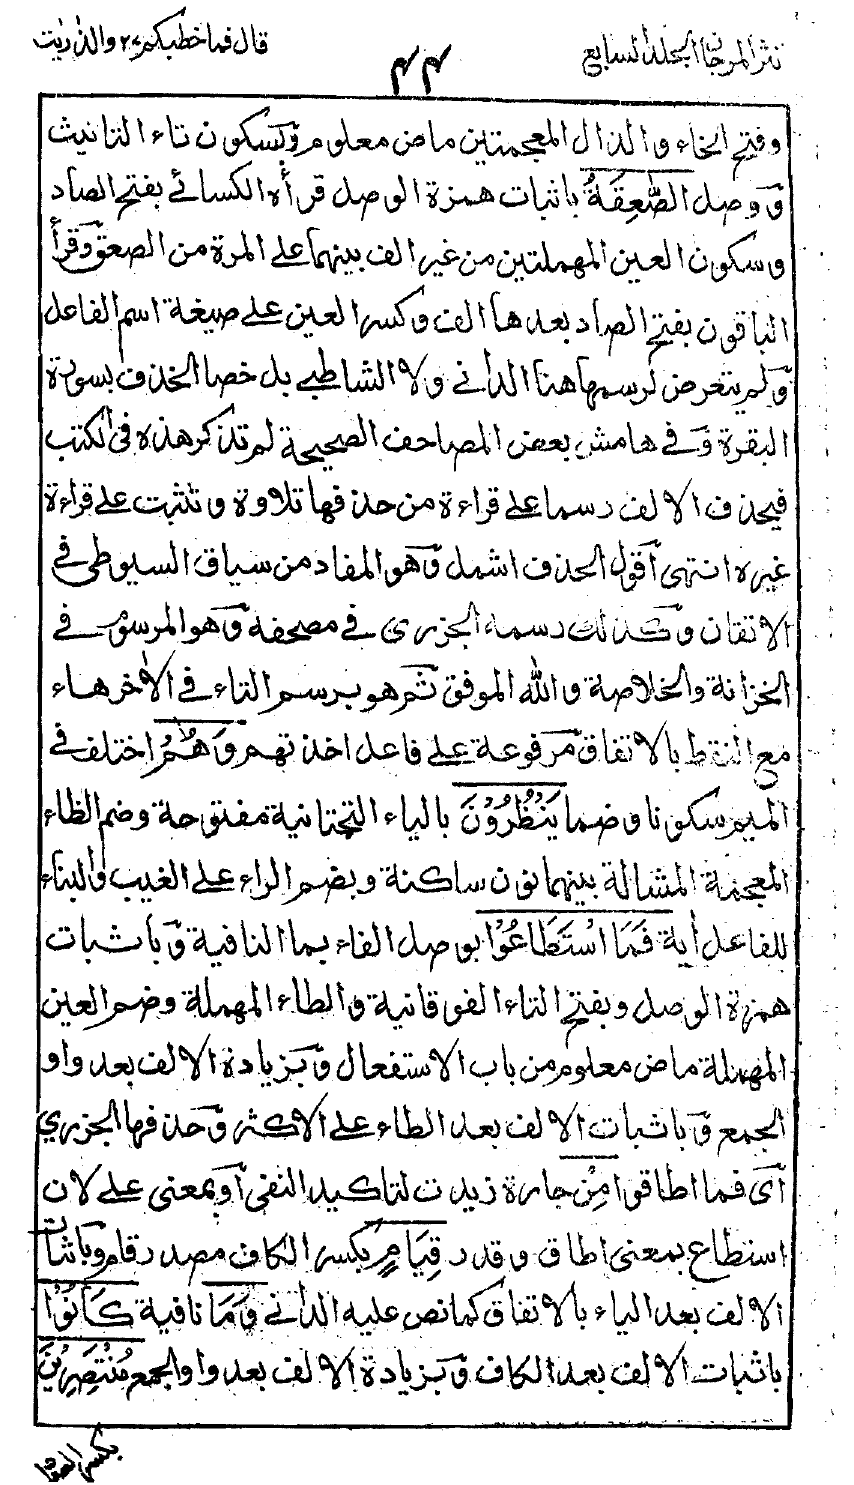 نثر المرجان المجلد السابع
٤٤
قال فما خطبكم ٢٧ والذٰريٰت
وفتح الخاء والذال المعجمتين ماض معلوم وبسكون تاء التانيث
ووصل الصّٰعِقَةُ باثبات همزة الوصل قرأه الكسائي بفتح الصاد
وسكون العين المهملتين من غير الف بينهما على المرة من الصعق وقرأ
الباقون بفتح الصاد بعدها الف وكسر العين على صيغة اسم الفاعل
ولم يتعرض لرسمها هنا الداني ولا الشاطبي بل خصا الحذف بسورة
البقرة وفي هامش بعض المصاحف الصحيحة لم تذكر هذه في الكتب
فيحذف الالف رسما على قراءة من حذفها تلاوة وتثبت على قراءة
غيره انتهى أقول الحذف اشمل وهو المفاد من سياق السيوطي في
الاتقان وكذلك رسمه الجزري في مصحفه وهو المرسوم في
الخزانة والخلاصة والله الموفق ثم هو برسم التاء في الأخر هاء
مع النقط بالاتفاق مرفوعة على فاعل اخذتهم وَهُمْ اختلف في
الميم سكونا وضما يَنْظُرُوْنَ بالياء التحتانية مفتوحة وضم الظاء
المعجمة المشالة بينهما نون ساكنة وبضم الراء على الغيب والبناء
للفاعل أية فَمَا اسْتَطَاعُوْا بوصل الفاء بما النافية وبأثبات
همزة الوصل وبفتح التاء الفوقانية والطاء المهملة وضم العين
المهملة ماض معلوم من باب الاستفعال وبزيادة الالف بعد واو
الجمع وباثبات الالف بعد الطاء على الاكثر وحذفها الجزري
أى فما اطاقوا مِنْ جارة زيدت لتاكيد النفى أو بمعنى على لان
استطاع بمعنى اطاق وقدر قِيَامٍ بكسر القاف مصدر قام وباثبات
الالف بعد الياء بالاتفاق كما نص عليه الداني وَمَا نافية كَانُوْا
باثبات الالف بعد الكاف وبزيادة الالف بعد واو الجمع مُنْتَصِرِيْنَ
بكسر الصاد